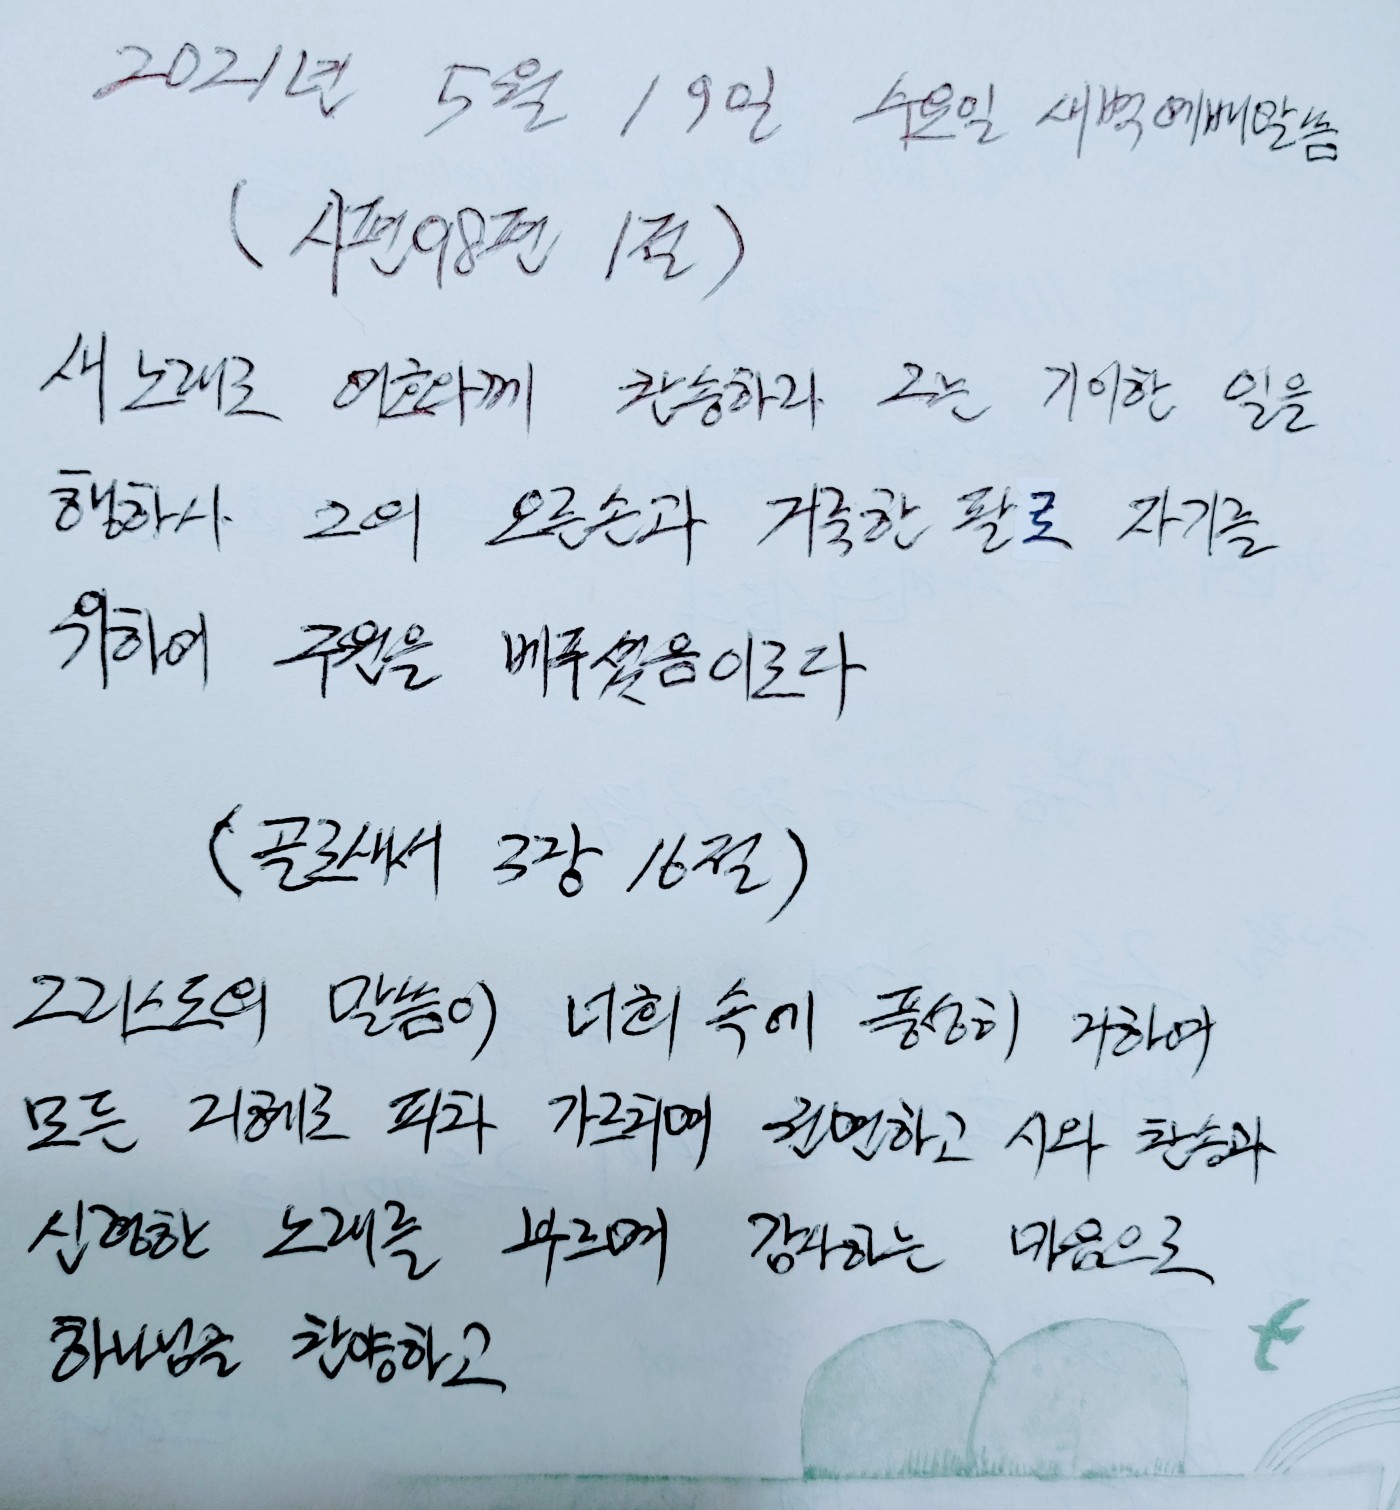 2021년 5월 19일 수요일 새벽예배말씀
(시편98편 1절)
새 노래로 여호와께 찬송하라 그는 기이한 일을
행하사 그의 오른손과 거룩한 팔로 자기를
위하여 구원을 베푸셨음이로다
(골로새서 3장 16절)
그리스도의 말씀이 너희 속에 풍성히 거하여
모든 지혜로 피차 가르치며 권면하고 시와 찬송과
신령한 노래를 부르며 감사하는 마음으로
하나님을 찬양하고